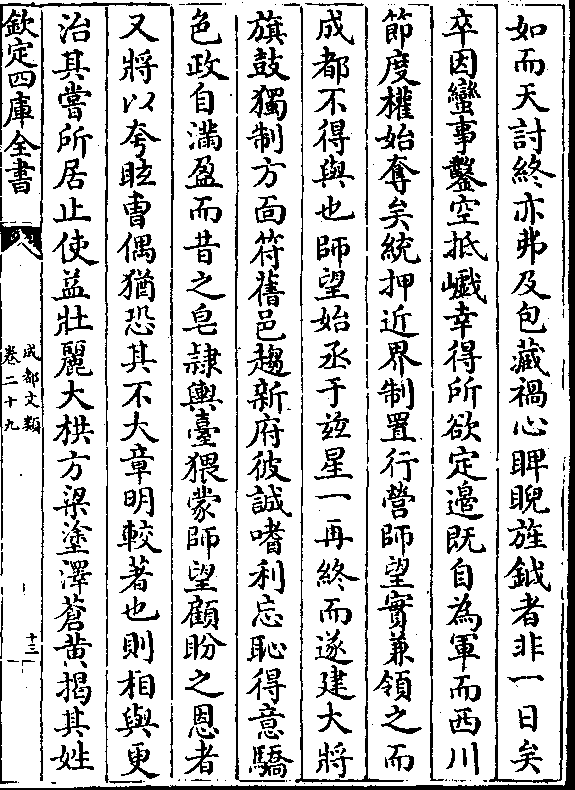 如而天討終亦弗及包藏禍心睥睨旌鉞者非一日矣
卒因蠻事鑿空抵巇幸得所欲定邉既自為軍而西川
節度權始奪矣統押近界制置行營師望實兼領之而
成都不得與也師望始丞于兹星一再終而遂建大將
旗鼓獨制方面符舊邑趨新府彼誠嗜利忘恥得意驕
色政自滿盈而昔之皂隷輿臺猥蒙師望顧盼之恩者
又將以夸眩曹偶猶恐其不大章明較著也則相與更
治其嘗所居止使益壯麗大栱方梁塗澤蒼黄揭其姓
欽定四庫全書
成都文類
卷二十九
十三